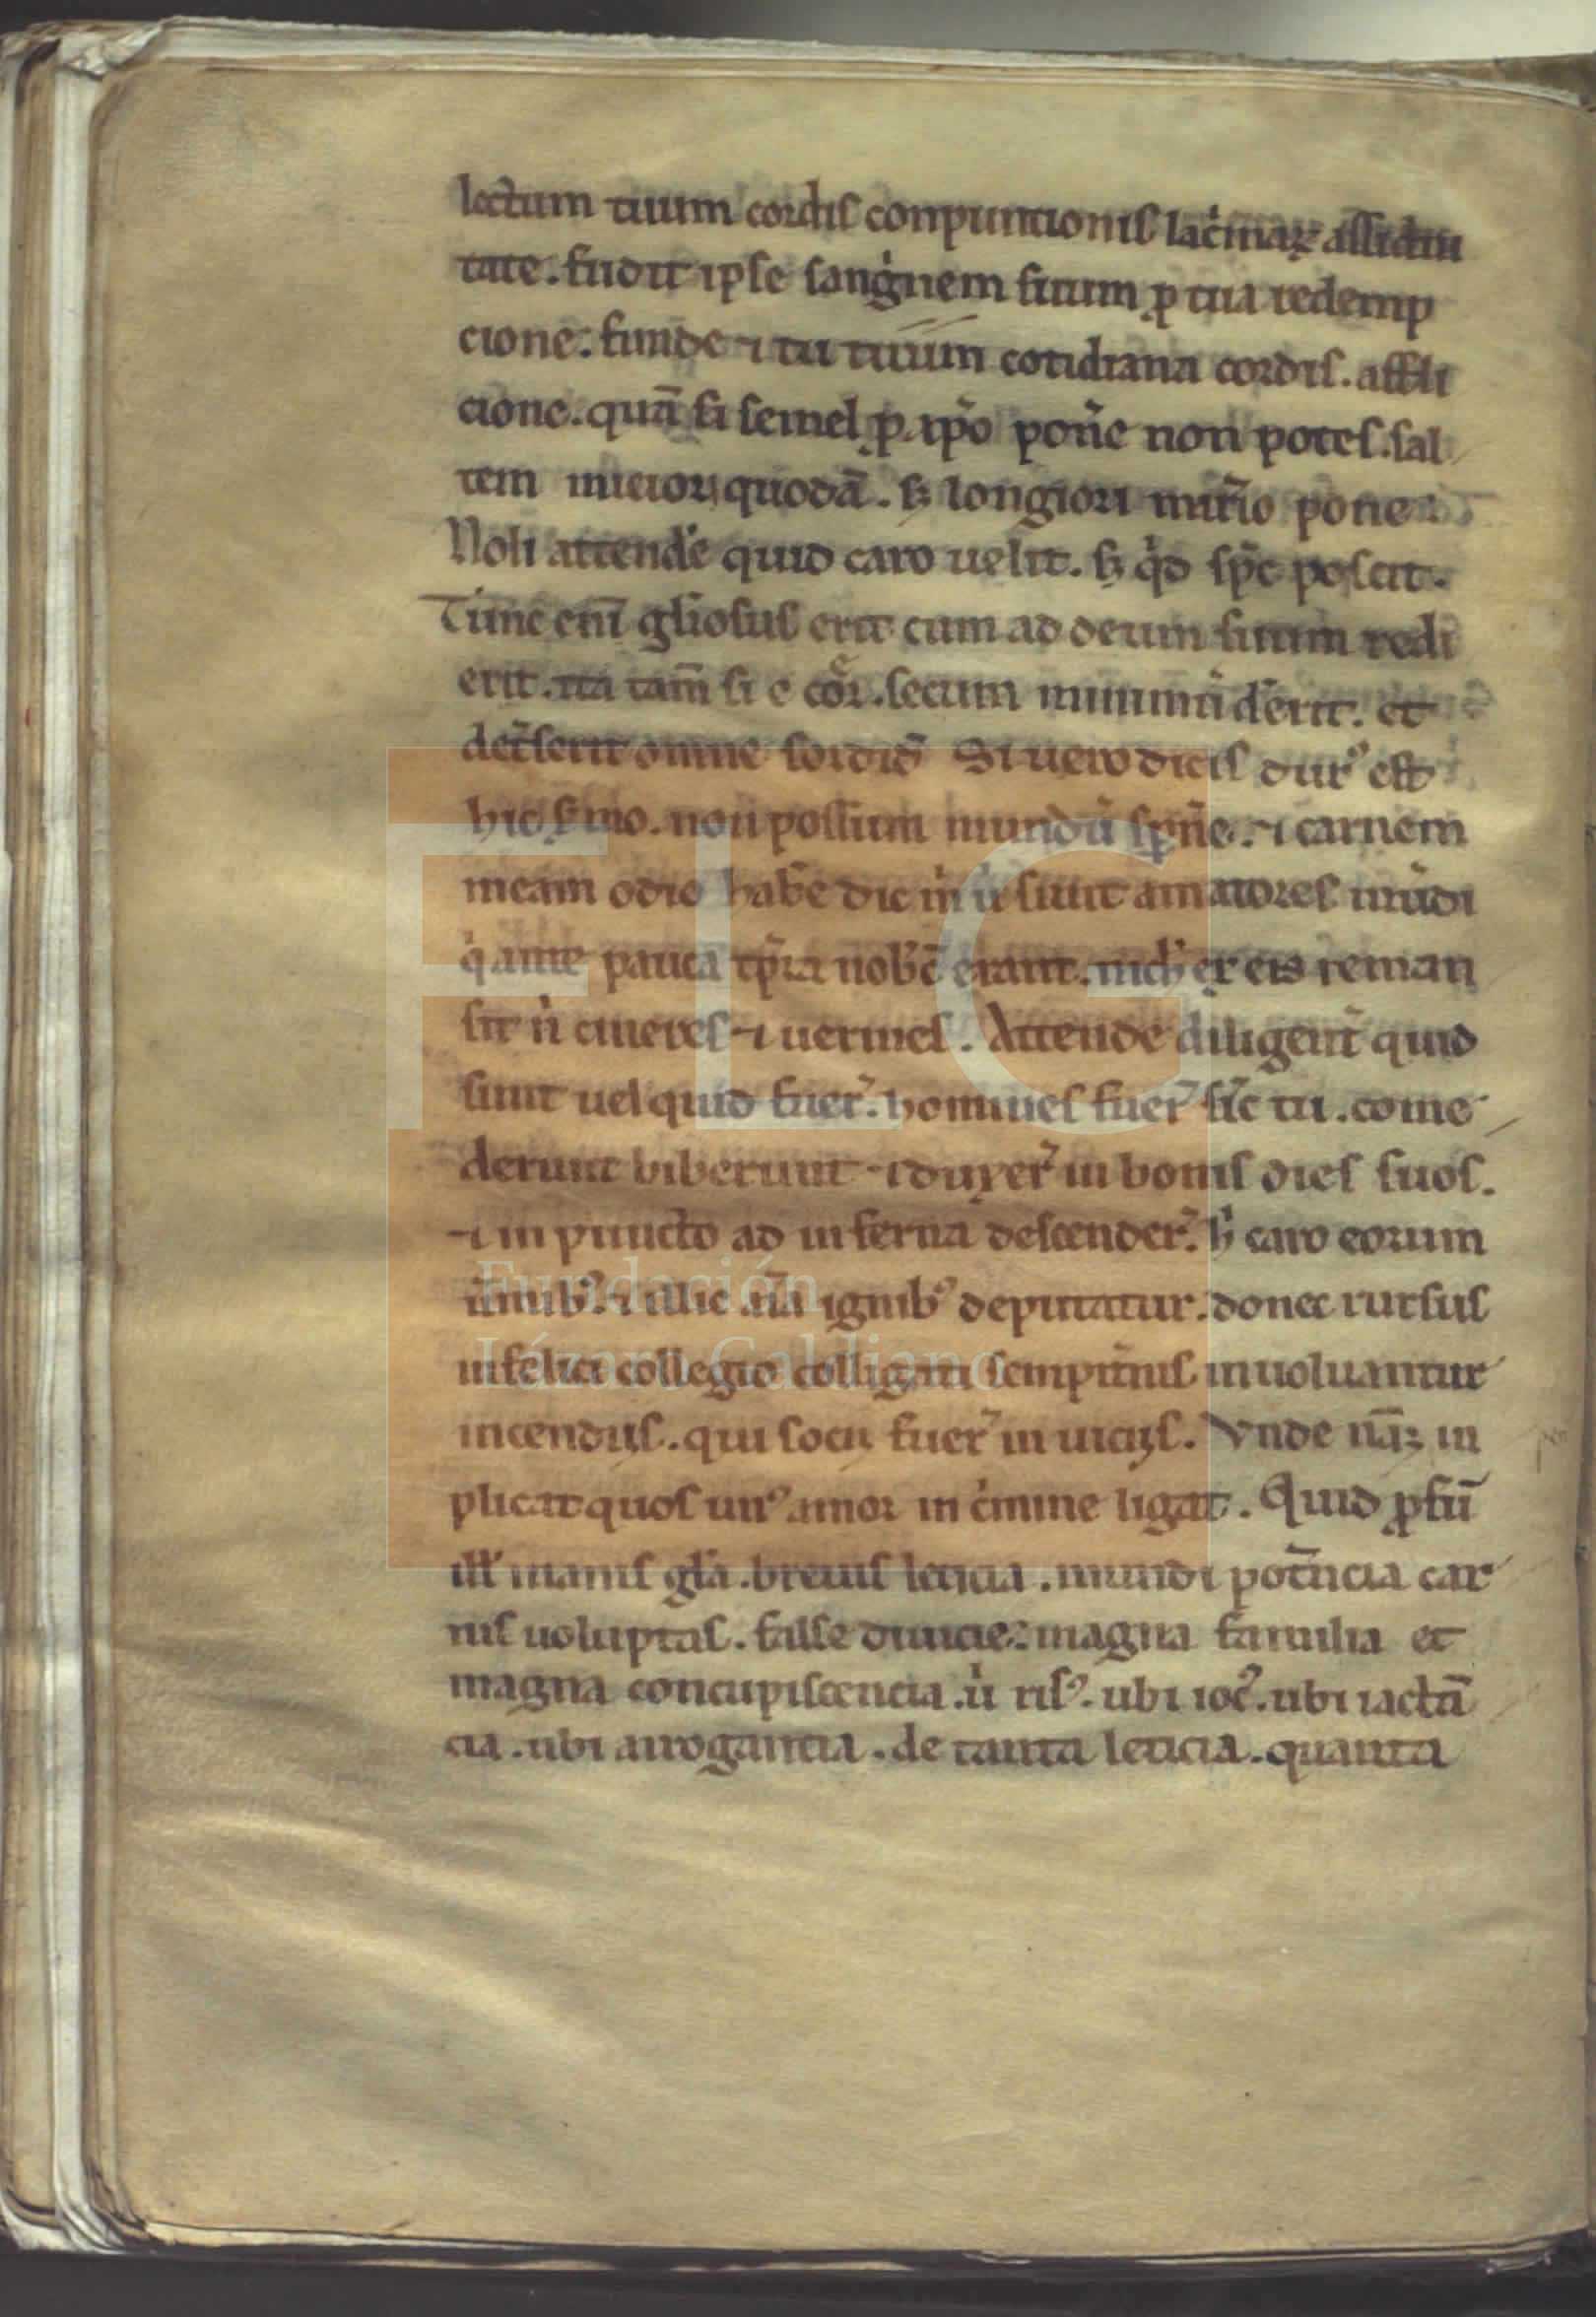 lectum tuum cordis conpunctionis lac̓maꝝ assidui
tate. fudit ipse sang̓nem suum ꝓ tua redemp
cione. funde ⁊ tu tuum cotidiana cordis. affli
cione. quā si semel ꝓ xp̄o pon̄e non potes. sal
tem miciori quodā. sꝫ longiori mr̄io pone.
Noli attend̄e quid caro uelit. sꝫ q̇d sp̄c poscit.
Tunc eni̅ gl̄iosus erit cum ad deum suum redi
erit. ita tam̄ si
secum et
omne Si uero dicis durꝰ est
hic s̄mo. non possum mundū sp̄ne. ⁊ carnem
meam odio hab̄e dic m̓ u̓ sunt amatores mūdi
q̓ ante pauca tp̄ra nob̄c erant. nich̓ ex eis reman
sit n̓ cineres ⁊ uermes. Attende diligent̄ quid
sunt uel quid fuer̄. homines fuer̄ sic̄ tu. come
derunt biberunt ⁊ duxer̄ in bonis dies suos.
⁊ in puncto ad inferna descender̄. h̓ caro eorum
u̓mibꝰ. ⁊ illic aīa ignibꝰ deputatur. donec rursus
infelici collegio colligati sempit̄nis inuoluantur
incendijs. qui socij fuer̄ in uicijs. Vnde nāꝫ in
plicat quos unꝰ amor in c̓mine ligat. Quid ꝓfu̅
ill̓ inanis gl̄a. breuis leticia. mundi pot̄ncia car
nis uoluptas. false diuicie. magna familia et
magna concupiscencia. u̓ risꝰ. ubi iocꝰ. ubi iactā
cia. ubi arrogancia. de tanta leticia. quanta
FLG
Fundación
Lázaro Galdiano